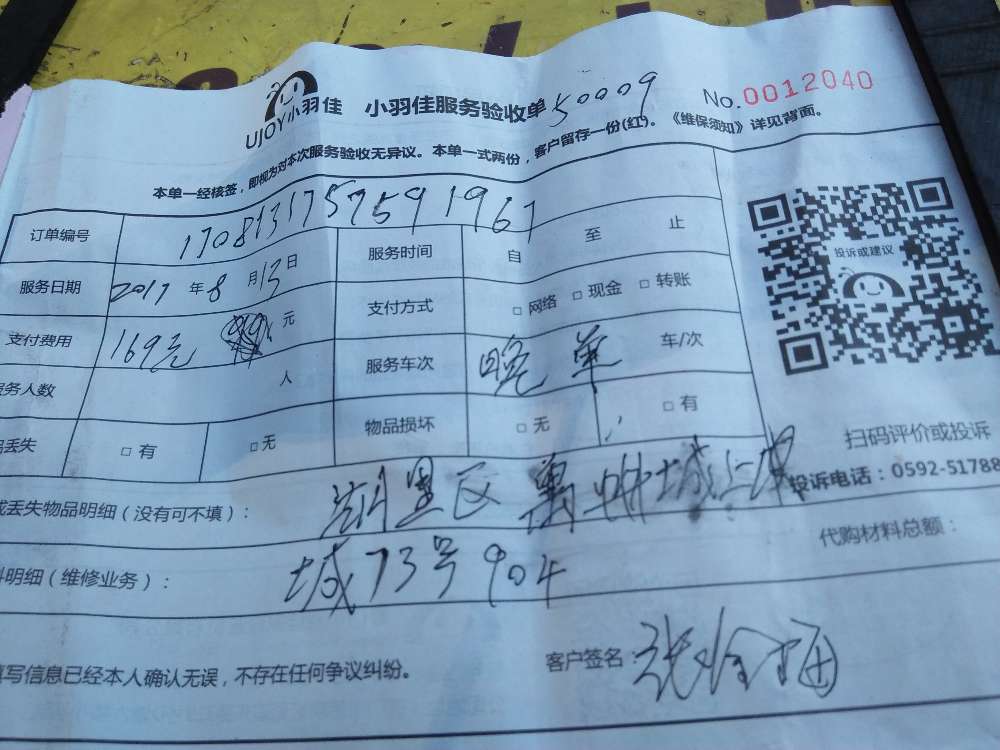 UJOY小羽佳 小羽佳服务验收单 50009 No.0012040
本单一经核签，即视为对本次服务验收无异议。本单一式两份，客户留存一份(红)。《维保须知》详见背面。
订单编号 1708131757591967
服务日期 2017 年 8 月 13 日 服务时间 自 至 止
支付费用 169元 元 支付方式 □ 网络 □ 现金 □ 转账
务人数 人 服务车次 晚单 车/次
丢失 □ 有 □ 无 物品损坏 □ 无 □ 有
投诉或建议
扫码评价或投诉
投诉电话：0592-51788
或丢失物品明细（没有可不填）： 湖里区
代购材料总额：
料明细（维修业务）： 城73号904
填写信息已经本人确认无误，不存在任何争议纠纷。 客户签名：张